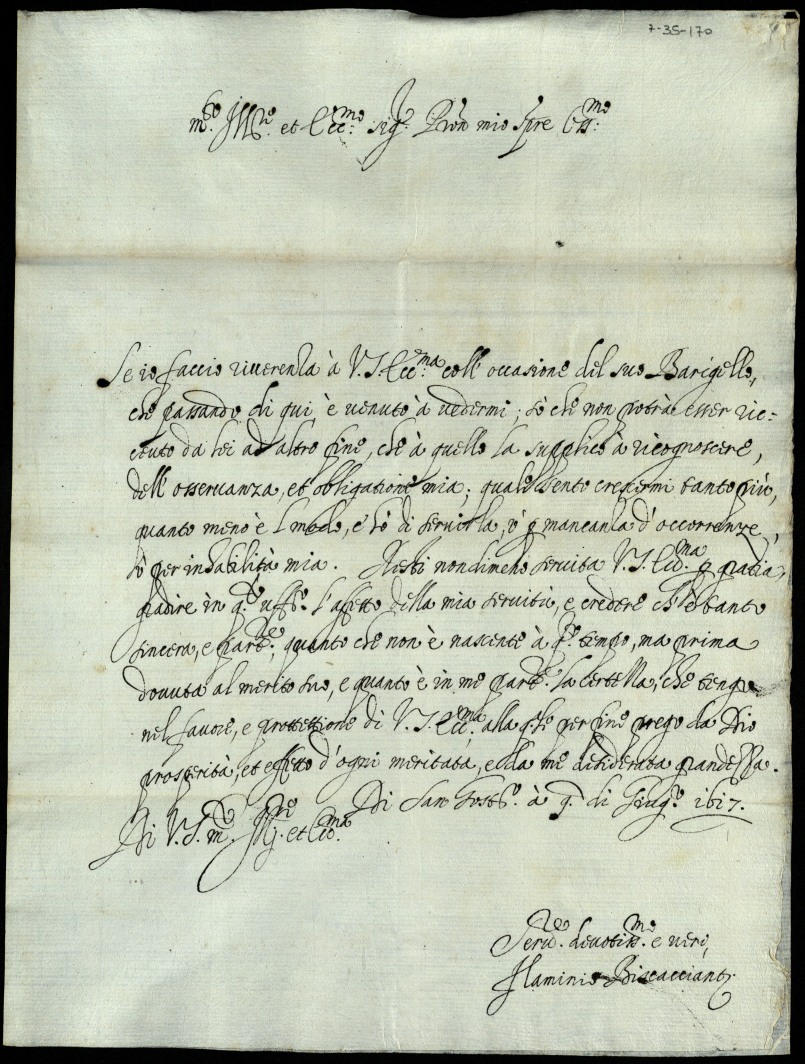 7-35-170
m.to Ill.re et Ecc.mo Sig.r Pron mio sp.re Oss.mo
Se io faccio riverenza à V.S. Ecc.ma coll' occasione del suo Barigello,
che passando di qui è venuto à vedermi; sò che non potrà esser ric=
evuto da lei ad altro fine, che à quello la supplico à ricognoscere,
dell' osservanza, et obligatione mia; quale sento crescermi tanto più,
quanto meno è l modo, e sò di servirla, ò p mancanza d'occorrenze,
ò per inhabilità mia. Resti nondimeno servita V.S. Ecc.ma p gratia,
gradire in q.to uff.o l'affetto della mia servitù, e credere ch'è tanto
sincera, e part.re, quanto che non è nascente à q.to tempo, ma prima
dovuta al merito suo, e quanto è in me part.re la certezza, che tengo
nel favore, e protettione di V.S. Ecc.ma alla q.le per fine prego da Dio
prosperità, et effetto d'ogni meritata, e da me desiderata grandezza.
Di San à di Giug.o 1617.
Di V.S. m.to Ill.re et Ecc.ma
Serv.re devotiss.mo e
Flaminio Biscacciant.